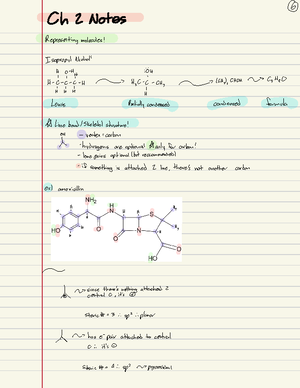 6
Ch 2 Notes
Representing molecules!
Isopropyl Alcohol
H O-H H
H-C-C-C-H
H H H
:OH
H₃C-C-CH₃
H
(CH₃)₂CHOH
C₃H₈O
Lewis
Partially condensed
condensed
formula
line bond/Skeletal structure!
OH
- vertex = carbon
- hydrogens are optional only for carbon!
- lone pairs optional (not recommended)
* if something is attached 2 line, there's not another carbon
ex) amoxicillin
NH₂
H
N
H
S
HO
O
O
N
O
HO
since there's nothing attached 2
central C, it's ⊕
Steric # = 3 ∴ sp² ∴ planar
has e⁻ pair attached to central
C ∴ it's ⊖
Steric # = 4 ∴ sp³ pyramidal